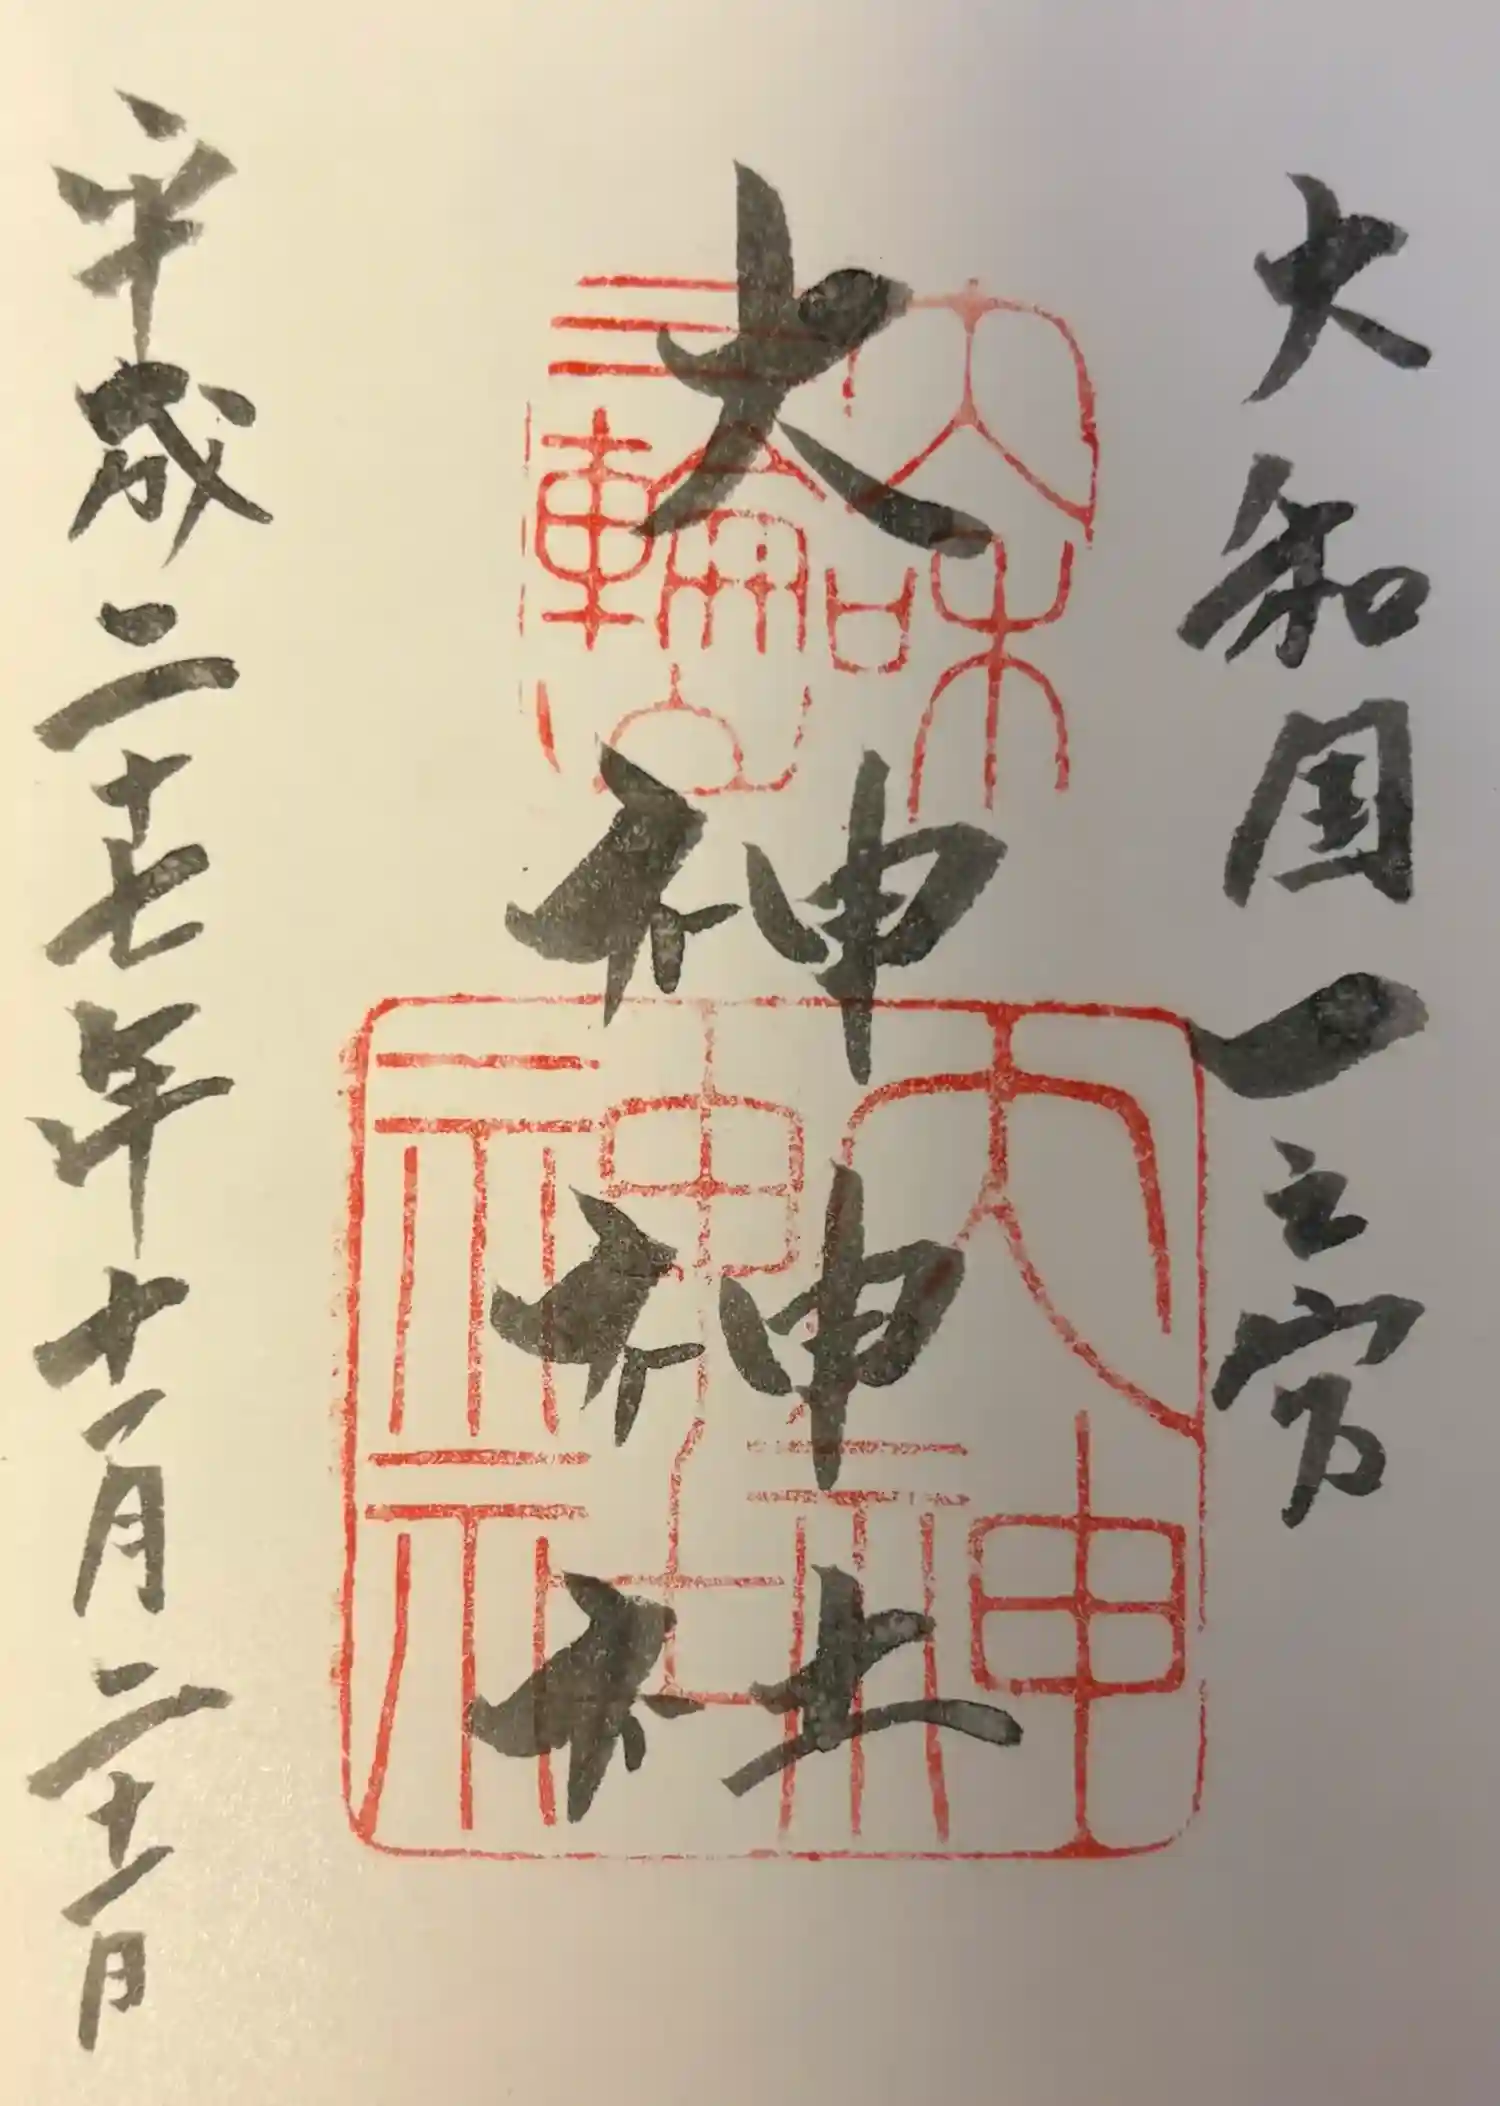 大和国一之宮
大神神社
平成二十七年十一月二十一日
大和
三輪
大神
神社